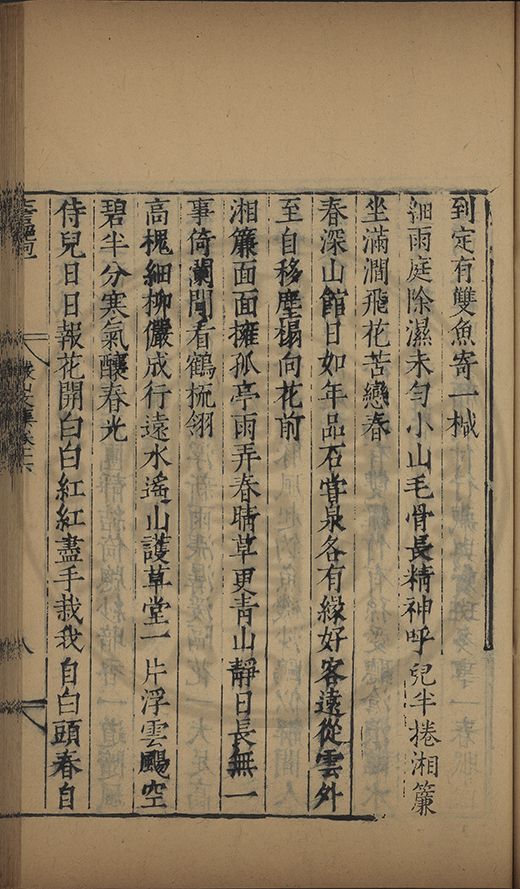 到定有雙魚寄一椷
細雨庭除濕未勻小山毛骨長精神呼兒半捲湘簾
坐滿澗飛花苦戀春
春深山館日如年品石嘗泉各有緣好客遠從雲外
至自移塵榻向花前
湘簾面面擁孤亭雨弄春晴草更青山靜日長無一
事倚闌閒看鶴梳翎
高槐細柳儼成行遠水遙山護草堂一片浮雲颺空
碧半分寒氣釀春光
侍兒日日報花開白白紅紅盡手栽我自白頭春自